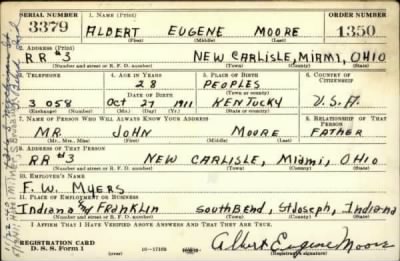 SERIAL NUMBER 1. NAME (Print) ORDER NUMBER
3379 ALBERT EUGENE MOORE 1350
(First) (Middle) (Last)
2. ADDRESS (Print)
RR #3 NEW CARLISLE, MIAMI, OHIO
(Number and street or R. F. D. number) (Town) (County) (State)
3. TELEPHONE 4. AGE IN YEARS 5. PLACE OF BIRTH 6. COUNTRY OF CITIZENSHIP
28 PEOPLES
DATE OF BIRTH (Town or county)
3 058 Oct 27 1911 KENTUCKY U.S.A.
(Exchange) (Number) (Mo.) (Day) (Yr.) (State or country)
7. NAME OF PERSON WHO WILL ALWAYS KNOW YOUR ADDRESS 8. RELATIONSHIP OF THAT PERSON
MR. JOHN MOORE FATHER
(Mr., Mrs., Miss) (First) (Middle) (Last)
9. ADDRESS OF THAT PERSON
RR #3 NEW CARLISLE, MIAMI, OHIO
(Number and street or R. F. D. number) (Town) (County) (State)
10. EMPLOYER'S NAME
F. W. MYERS
11. PLACE OF EMPLOYMENT OR BUSINESS
Indiana FRANKLIN SOUTH BEND, St Joseph, Indiana
(Number and street or R. F. D. number) (Town) (County) (State)
I AFFIRM THAT I HAVE VERIFIED ABOVE ANSWERS AND THAT THEY ARE TRUE.
REGISTRATION CARD
D. S. S. Form 1 (over) Albert Eugene Moore
(Registrant's signature)